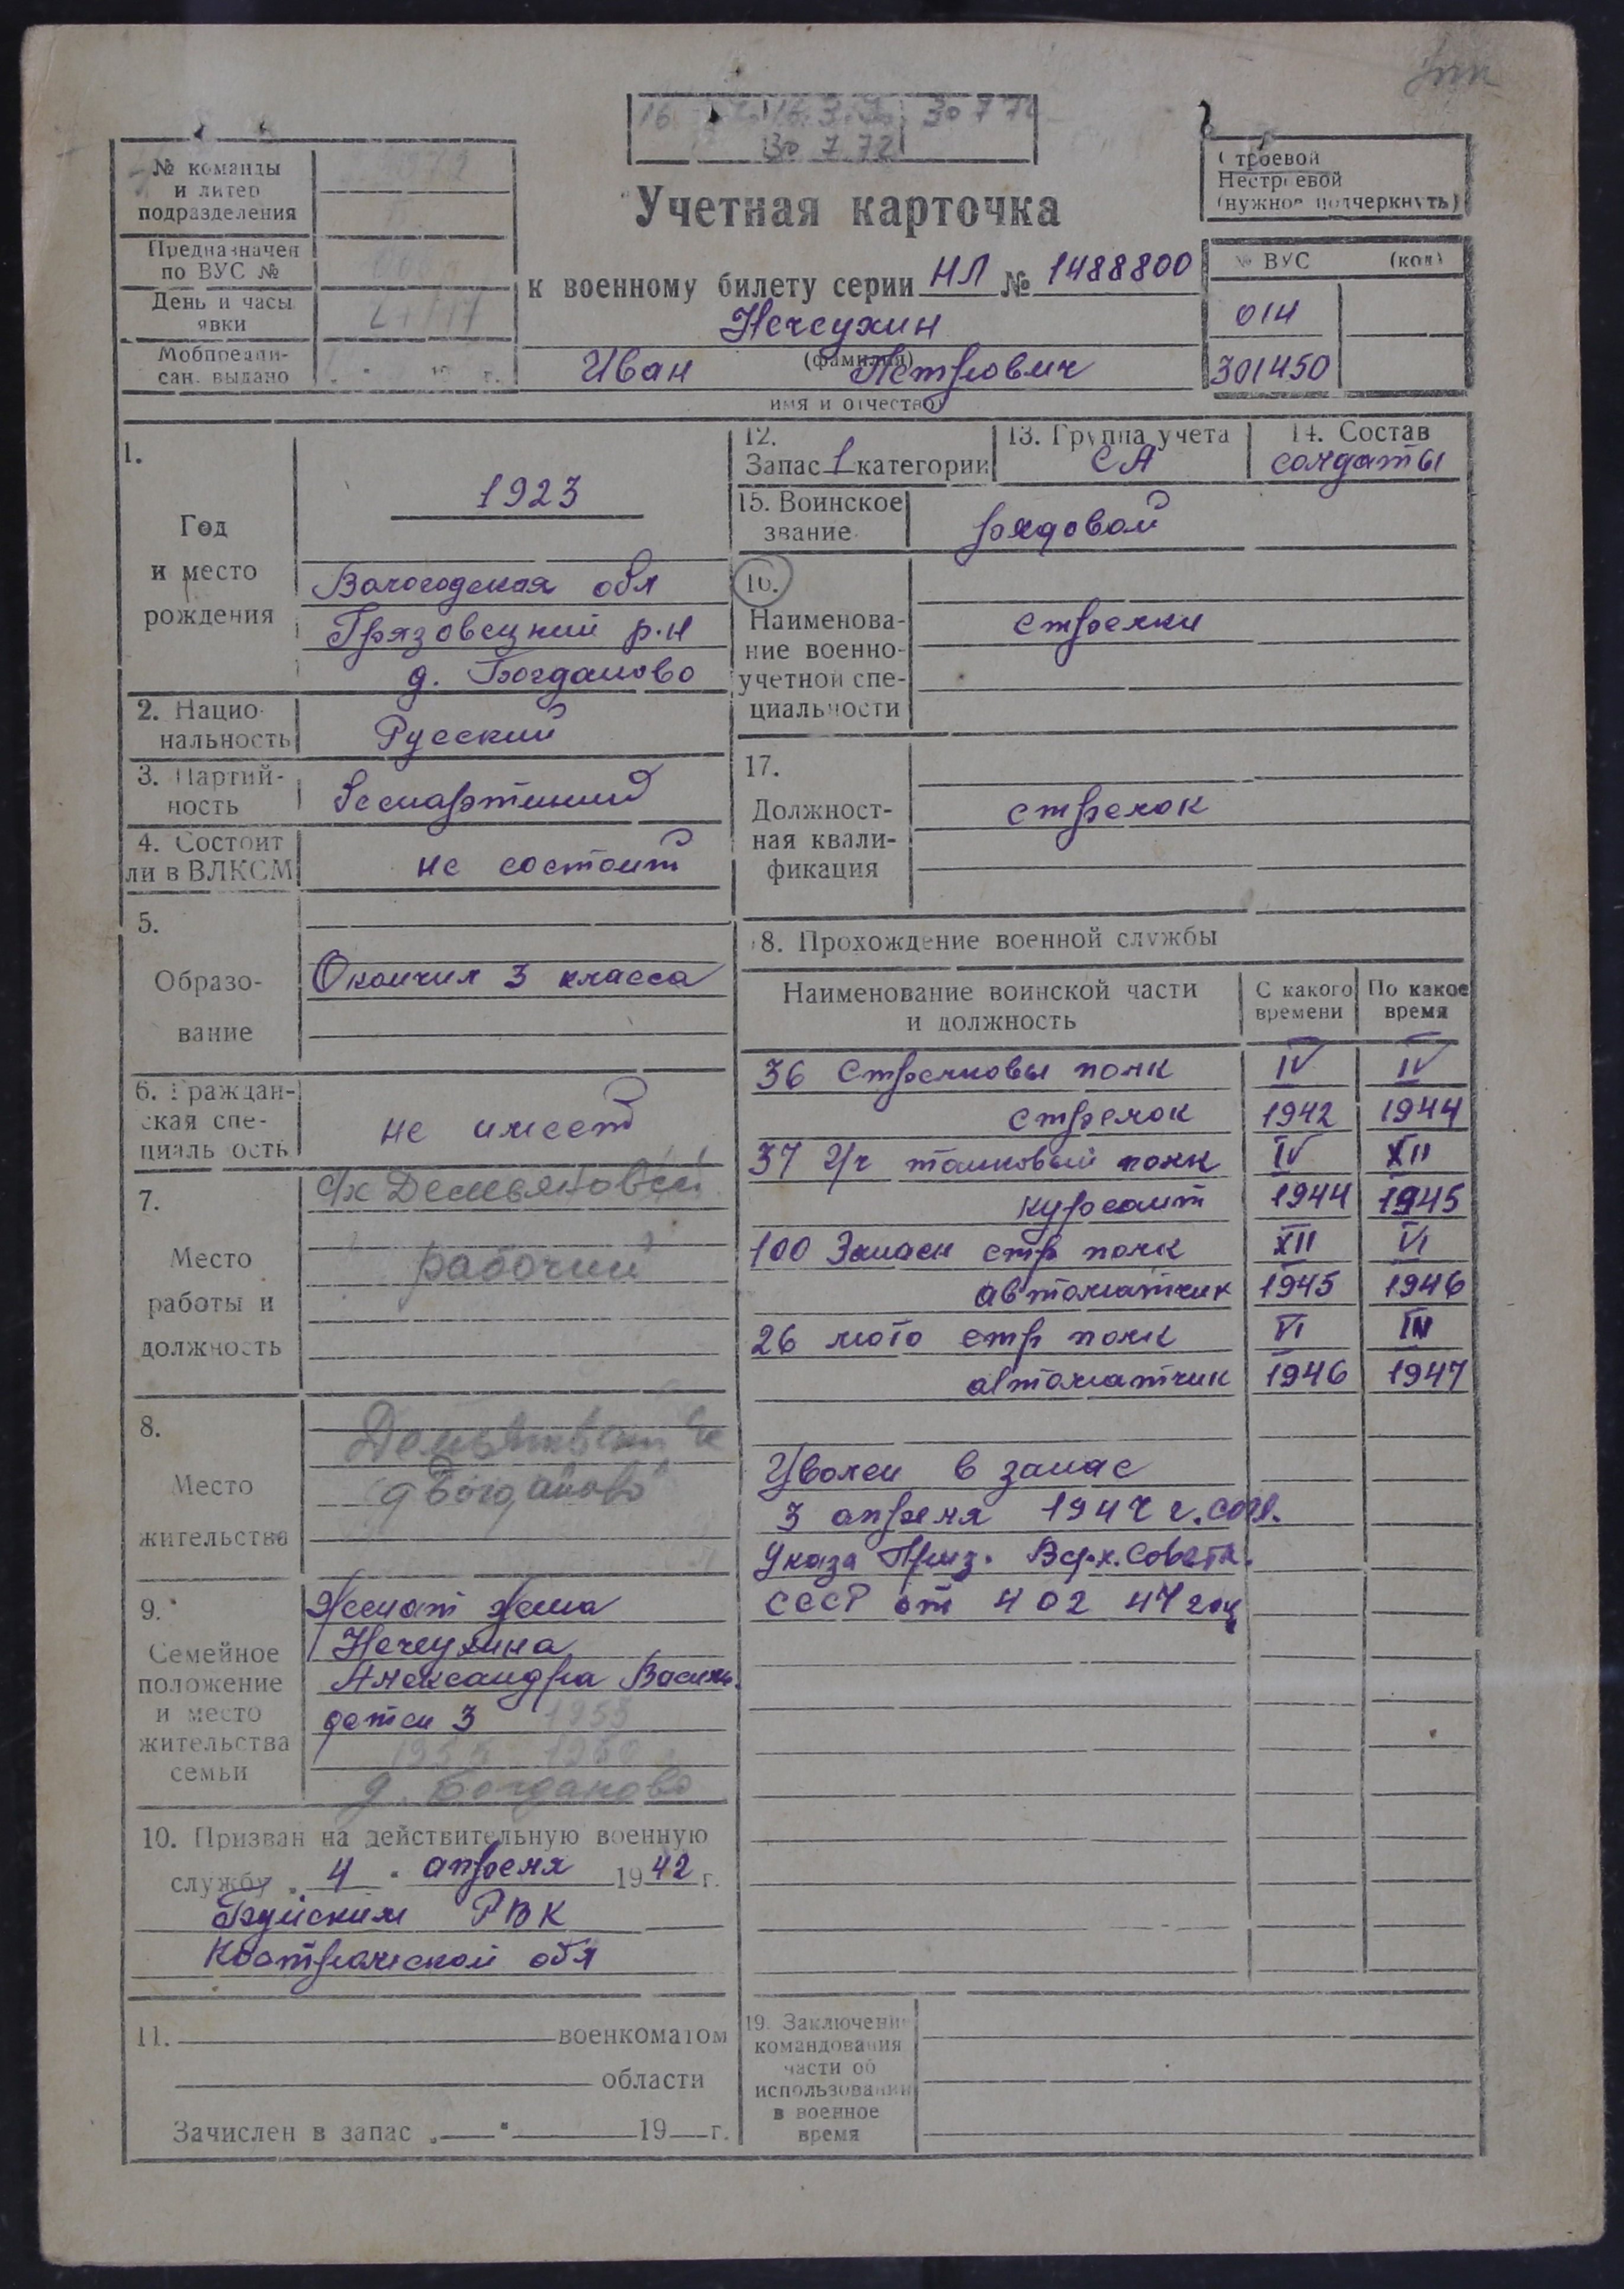 30 7 72
30 7 72
№ команды
и литер
подразделения
Предназначен
по ВУС №
День и часы
явки
Мобпредпи-
сан. выдано
г.
Строевой
Нестроевой
(нужное подчеркнуть)
Учетная карточка
к военному билету серии НЛ № 1488800
Нечеухин
(фамилия)
Иван Петрович
имя и отчество
№ ВУС (код)
014
301450
1.
Год
и место
рождения
1923
Вологодская обл
Грязовецкий р-н
д. Богданово
2. Нацио-
нальность
Русский
3. Партий-
ность
беспартийный
4. Состоит
ли в ВЛКСМ
не состоит
5.
Образо-
вание
Окончил 3 класса
6. Граждан-
ская спе-
циальность
не имеет
7.
Место
работы и
должность
с/х Демьяновский
рабочий
8.
Место
жительства
д Богданово
9.
Семейное
положение
и место
жительства
семьи
Женат жена
Нечеухина
Александра Василь.
дети 3 1953
1960
д. Богданово
10. Призван на действительную военную
службу „4" апреля 1942 г.
Буйским РВК
Костромской обл
11. военкоматом
области
Зачислен в запас „ " 19 г.
12.
Запас 1 категории
13. Группа учета
СА
14. Состав
солдаты
15. Воинское
звание
рядовой
16.
Наименова-
ние военно-
учетной спе-
циальности
стрелки
17.
Должност-
ная квали-
фикация
стрелок
18. Прохождение военной службы
Наименование воинской части
и должность
С какого
времени
По какое
время
36 Стрелковы полк IV IV
стрелок 1942 1944
37 Уч танковый полк IV XII
курсант 1944 1945
100 Запасн стр полк XII VI
автоматчик 1945 1946
26 мото стр полк VI IV
автоматчик 1946 1947
Уволен в запас
3 апреля 1947 г. согл.
Указа През. Верх. Совета.
СССР от 4 02 47 год
19. Заключение
командования
части об
использовании
в военное
время